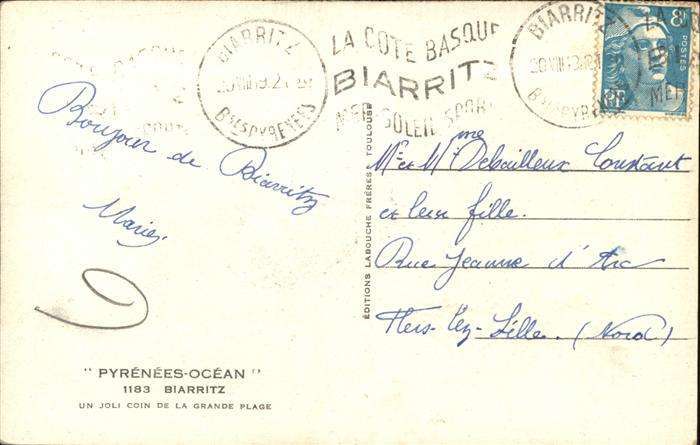 BIARRITZ
Bses PYRENEES
LA COTE BASQUE
BIARRITZ
MER SOLEIL SPORTS
BIARRITZ
Bses PYRENEES
POSTES
RF
Bonjour de Biarritz
Maries
Mr et Mme Debailleux Constant
et leur fille.
Rue Jeanne d'Arc
Flers-lez-Lille. (Nord)
ÉDITIONS LABOUCHE FRÈRES TOULOUSE
" PYRÉNÉES-OCÉAN "
1183 BIARRITZ
UN JOLI COIN DE LA GRANDE PLAGE